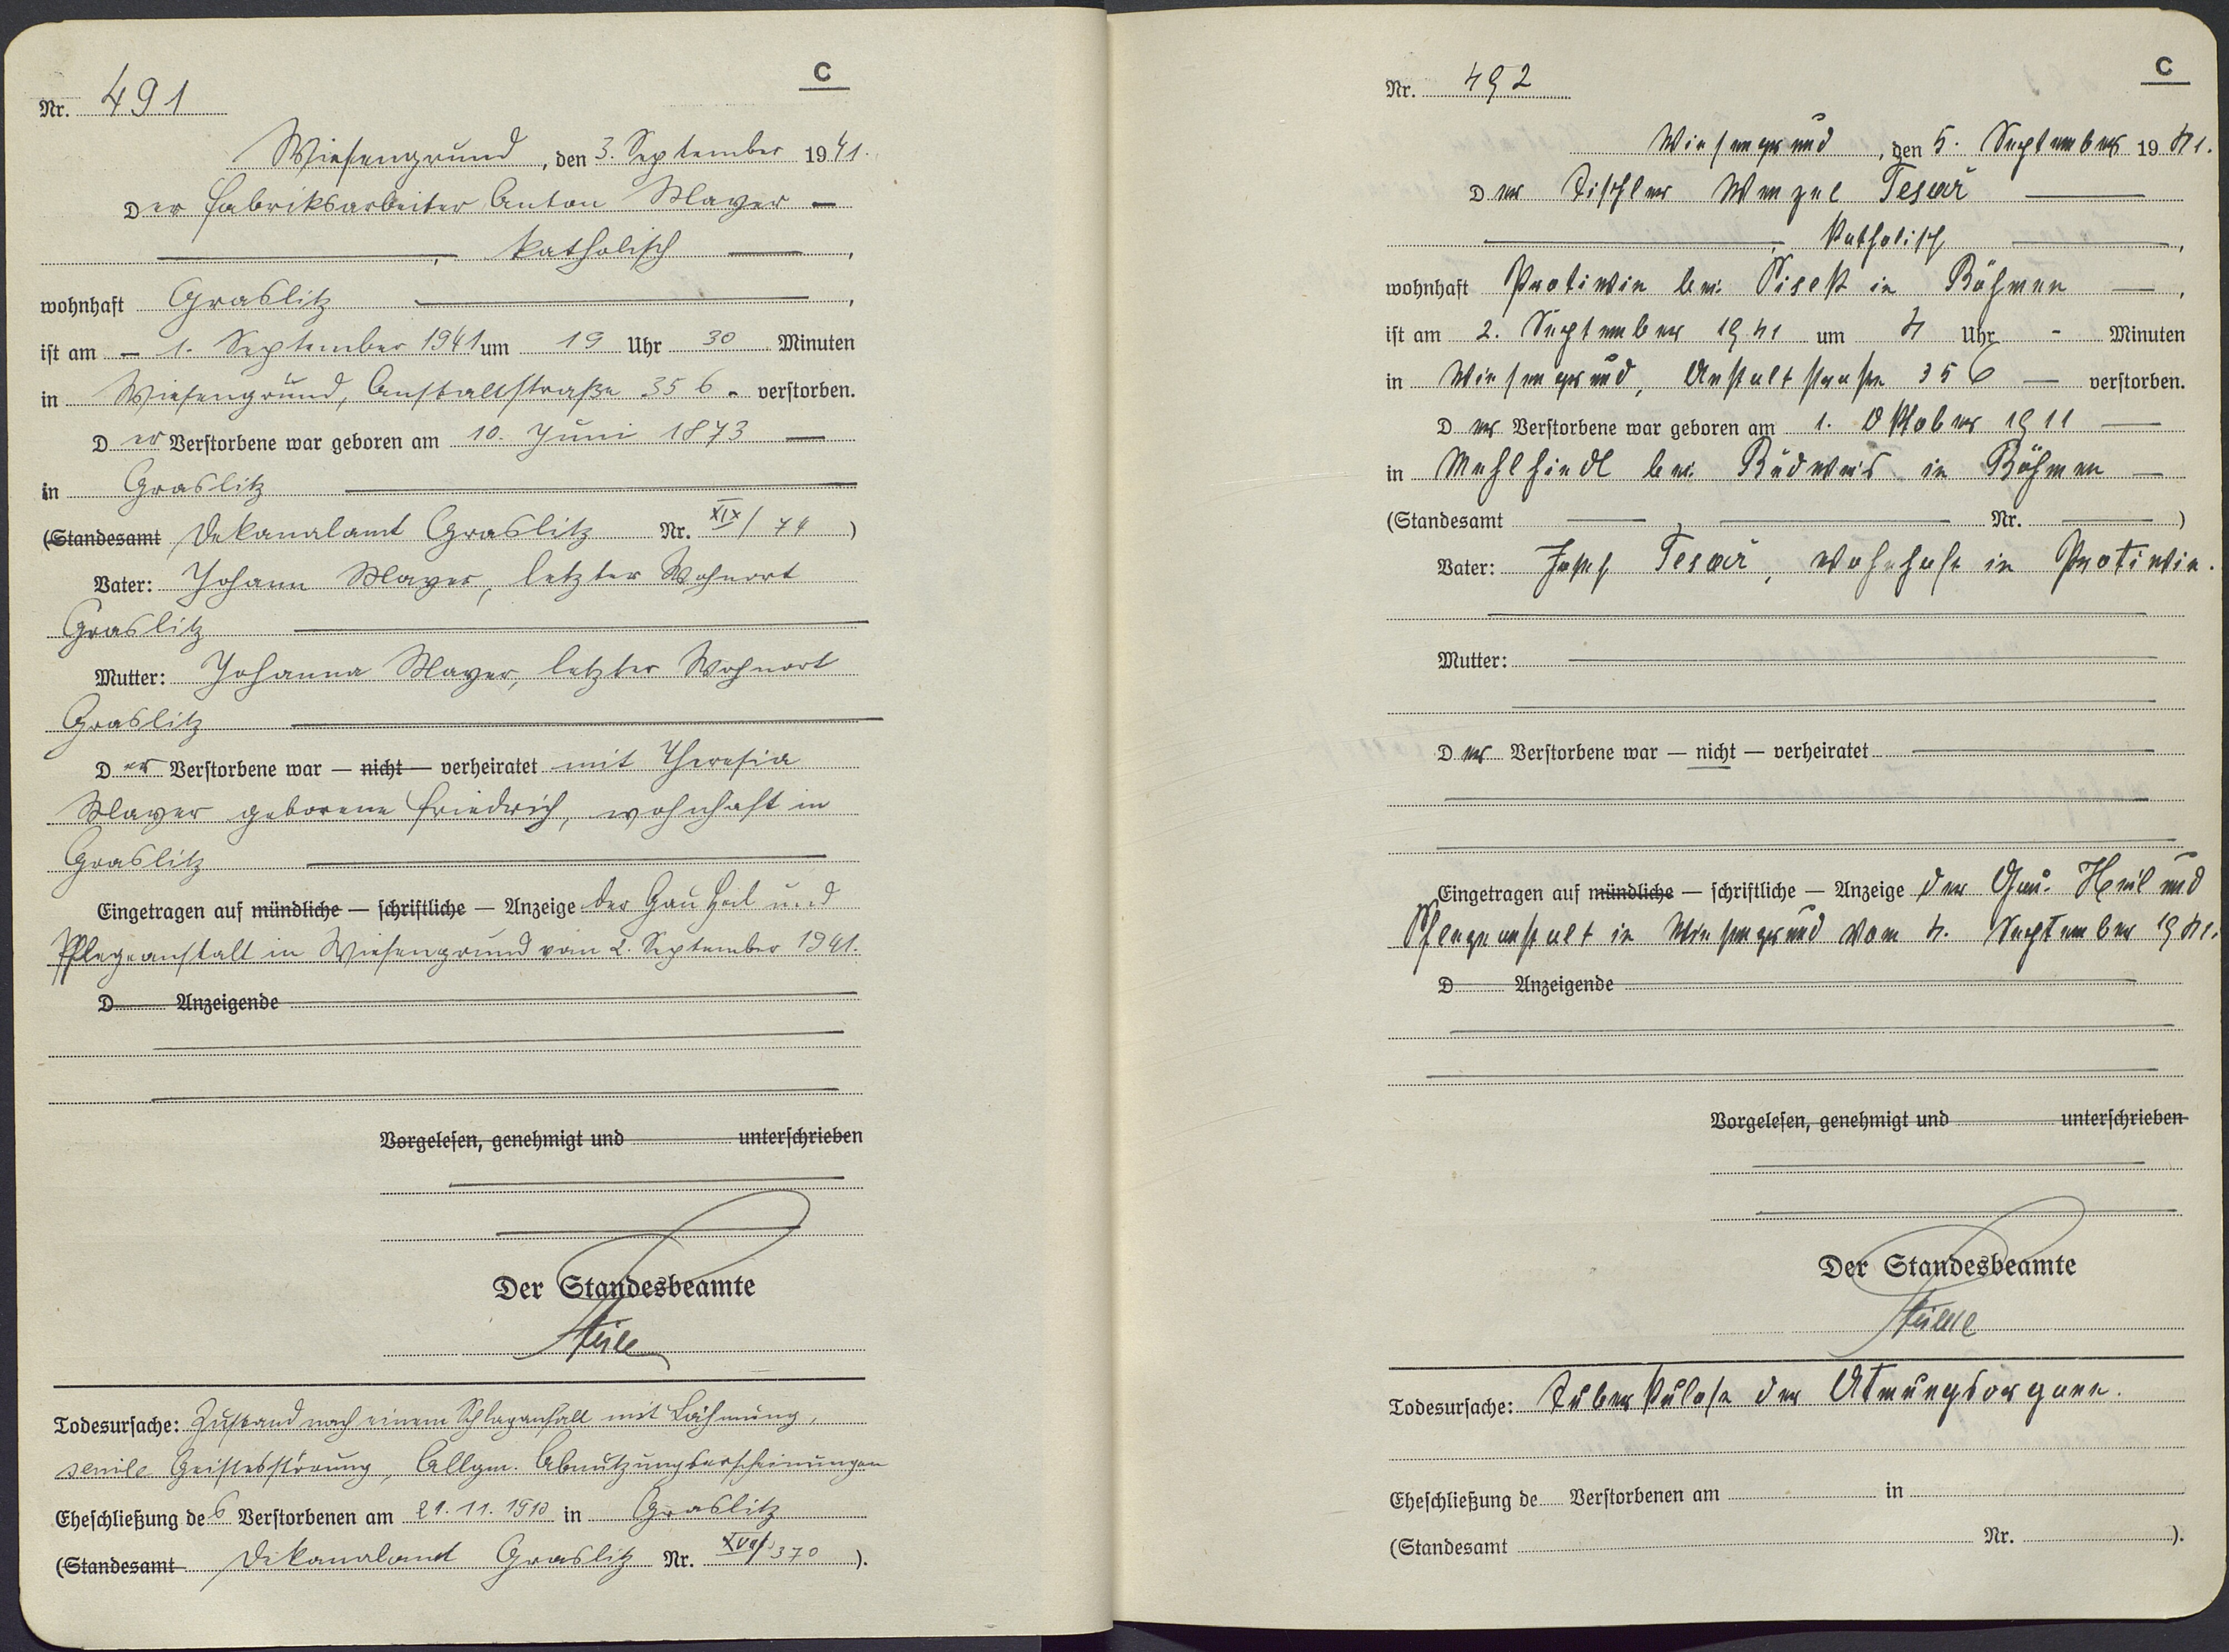 C
Nr. 491
Wiesengrund, den 3. September 1941.
Der Fabriksarbeiter Anton Mayer —
—, katholisch —,
wohnhaft Graslitz —,
ist am — 1. September 1941 um 19 Uhr 30 Minuten
in Wiesengrund, Anstaltstraße 356 - verstorben.
Der Verstorbene war geboren am 10. Juni 1873 —
in Graslitz —
(Standesamt Dekanalamt Graslitz Nr. XIX/74)
Vater: Johann Mayer, letzter Wohnort
Graslitz —
Mutter: Johanna Mayer, letzter Wohnort
Graslitz —
Der Verstorbene war — nicht — verheiratet mit Theresia
Mayer geborene Friedrich, wohnhaft in
Graslitz —
Eingetragen auf mündliche — schriftliche — Anzeige der Gau Heil und
Pflegeanstalt in Wiesengrund vom 2. September 1941.
D Anzeigende
Vorgelesen, genehmigt und unterschrieben
Der Standesbeamte
Todesursache: Zustand nach einem Schlaganfall mit Lähmung,
senile Geistesstörung, Allgm. Abnutzungserscheinungen
Eheschließung des Verstorbenen am 21.11.1910 in Graslitz
(Standesamt Dekanalamt Graslitz Nr. 370).
C
Nr. 492
Wiesengrund, den 5. September 1941.
Der Tischler Wenzel Tesař —
—, katholisch —,
wohnhaft Protiwin bei Pisek in Böhmen —,
ist am 2. September 1941 um 4 Uhr - Minuten
in Wiesengrund, Anstaltstraße 356 — verstorben.
Der Verstorbene war geboren am 1. Oktober 1911 —
in bei Budweis in Böhmen —
(Standesamt — Nr. —)
Vater: Josef Tesař, wohnhaft in Protiwin.
Mutter: —
Der Verstorbene war — nicht — verheiratet —
Eingetragen auf mündliche — schriftliche — Anzeige der Gau- Heil und
Pflegeanstalt in Wiesengrund vom 4. September 1941.
D Anzeigende
Vorgelesen, genehmigt und unterschrieben
Der Standesbeamte
Todesursache: Tuberkulose der Atmungsorgane.
Eheschließung de Verstorbenen am in
(Standesamt Nr. ).